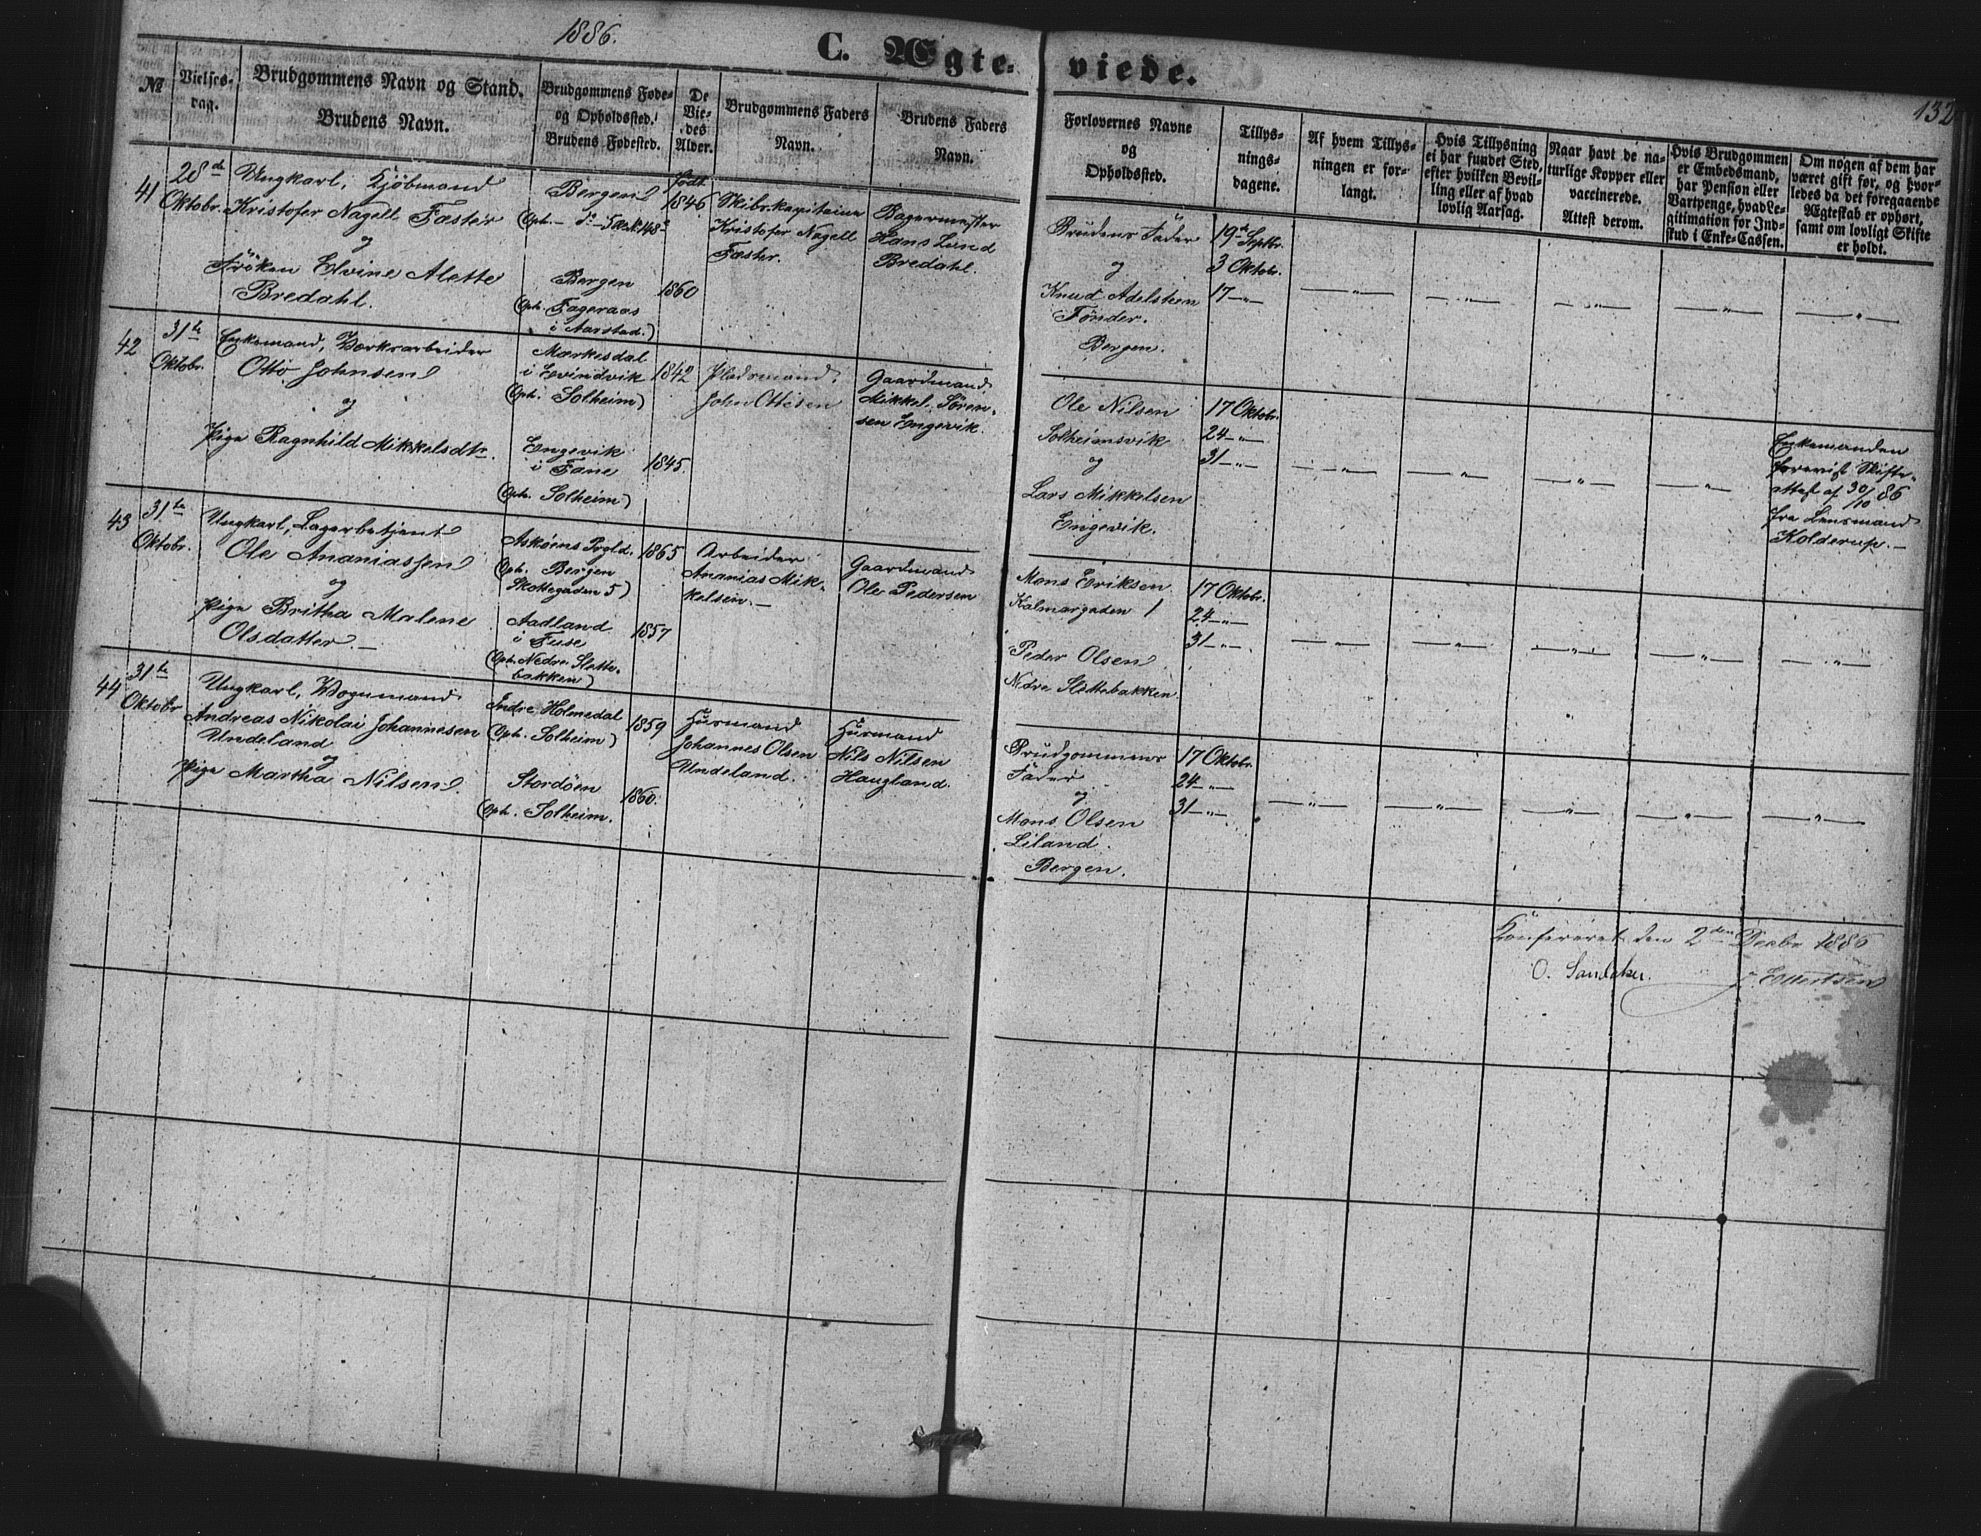 1886.
C. Ægte-
viede.
132
№
Vielses-
dag.
Brudgommens Navn og Stand.
Brudens Navn.
Brudgommens Føde-
og Opholdssted.
Brudens Fødested.
De
Vie-
des
Alder.
Brudgommens Faders
Navn.
Brudens Faders
Navn.
Forlovernes Navne
og
Opholdssted.
Tillys-
nings-
dagene.
Af hvem Tillys-
ningen er for-
langt.
Hvis Tillysning
ei har fundet Sted,
efter hvilken Bevil-
ling eller af hvad
lovlig Aarsag.
Naar havt de na-
turlige Kopper eller
vaccinerede.
Attest derom.
Hvis Brudgommen
er Embedsmand,
har Pension eller
Vartpenge, hvad Le-
gitimation for Ind-
skud i Enke-Cassen.
Om nogen af dem har
været gift før, og hvor-
ledes da det foregaaende
Ægteskab er ophørt,
samt om lovligt Skifte
er holdt.
41
28de
Oktobr.
Ungkarl, Kjøbmand
Kristofer Nagell Fæster
og
Frøken Elvine Alette
Bredahl.
Bergen
Oph. do
Bergen
(Oph. Fageraas
i Aarstad.)
Født
1846
1860
Skibskapitaine
Kristofer Nagell
Fæster.
Bagermester
Hans Lund
Bredahl.
Brudens Fader
og
Knud Adelsteen
Tønder.
Bergen.
19de Septbr.
3 Oktobr.
17 — „ —
42
31te
Oktobr.
Enkemand, Værksarbeider
Otto Johnsen
og
Pige Ragnhild Mikkelsdtr.
Mærkesdal
i Evindvik
(Oph. Solheim)
Engevik
i Fane
(Oph. Solheim)
1842
1845.
Pladsmand
John Ottesen
Gaardmand
Mikkel Søren-
sen Engevik.
Ole Nilsen
Solheimsvik
og
Lars Mikkelsen
Engevik.
17 Oktobr.
24 — „ —
31 — „ —
Enkemanden
forevist Skifte-
attest af 30/10 86
fra Lensmand
Kolderup. —
43
31te
Oktobr.
Ungkarl, Lagerbetjent
Ole Ananiassen
og
Pige Britha Malene
Olsdatter. —
Askøens Prgld.
(Oph. Bergen
Skottegaden 5)
Aadland
i Fuse
(Oph. Nedre Slette-
bakken)
1865
1857
Arbeider
Ananias Mik-
kelsen. —
Gaardmand
Ole Pedersen
Mons Eriksen
Kalmargaden 1
Peder Olsen
Nedre Slettebakken.
17 Oktobr.
24 — „ —
31 — „ —
44
31te
Oktobr
Ungkarl, Vognmand
Andreas Nikolai Johannesen
Undeland
og
Pige Martha Nilsen.
Indre Holmedal
(Oph. Solheim)
Stordøen
(Oph. Solheim.
1859
1860.
Husmand
Johannes Olsen
Undeland.
Husmand
Nils Nilsen
Haugland.
Brudgommens
Fader
og
Mons Olsen
Liland.
Bergen.
17 Oktobr.
24 — „ —
31 — „ —
Konfereret den 2den Decbr 1886
O. Sandaker. J. Ellertsen